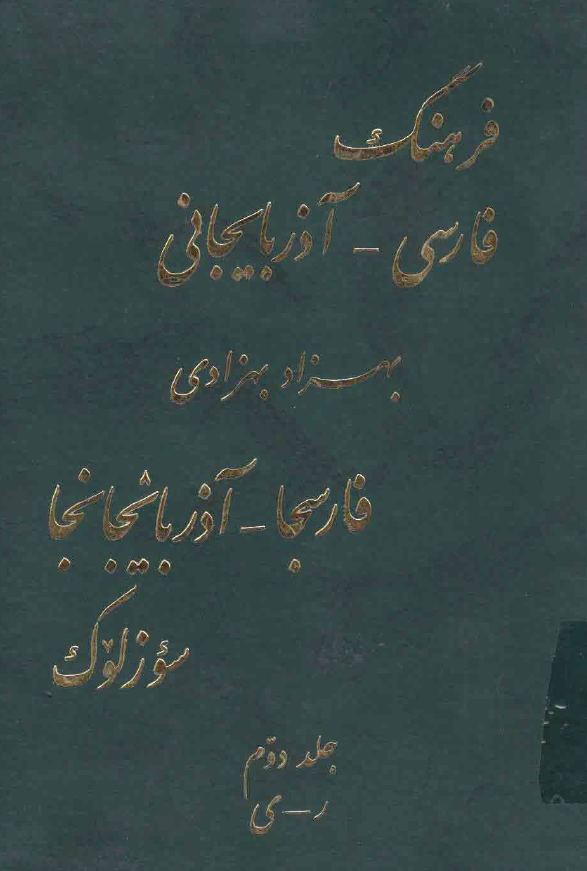 فرهنگ
فارسی - آذربایجانی
بهزاد بهزادی
فارسجا - آذربایجانجا
سؤزلۆک
جلد دوّم
ر - ی